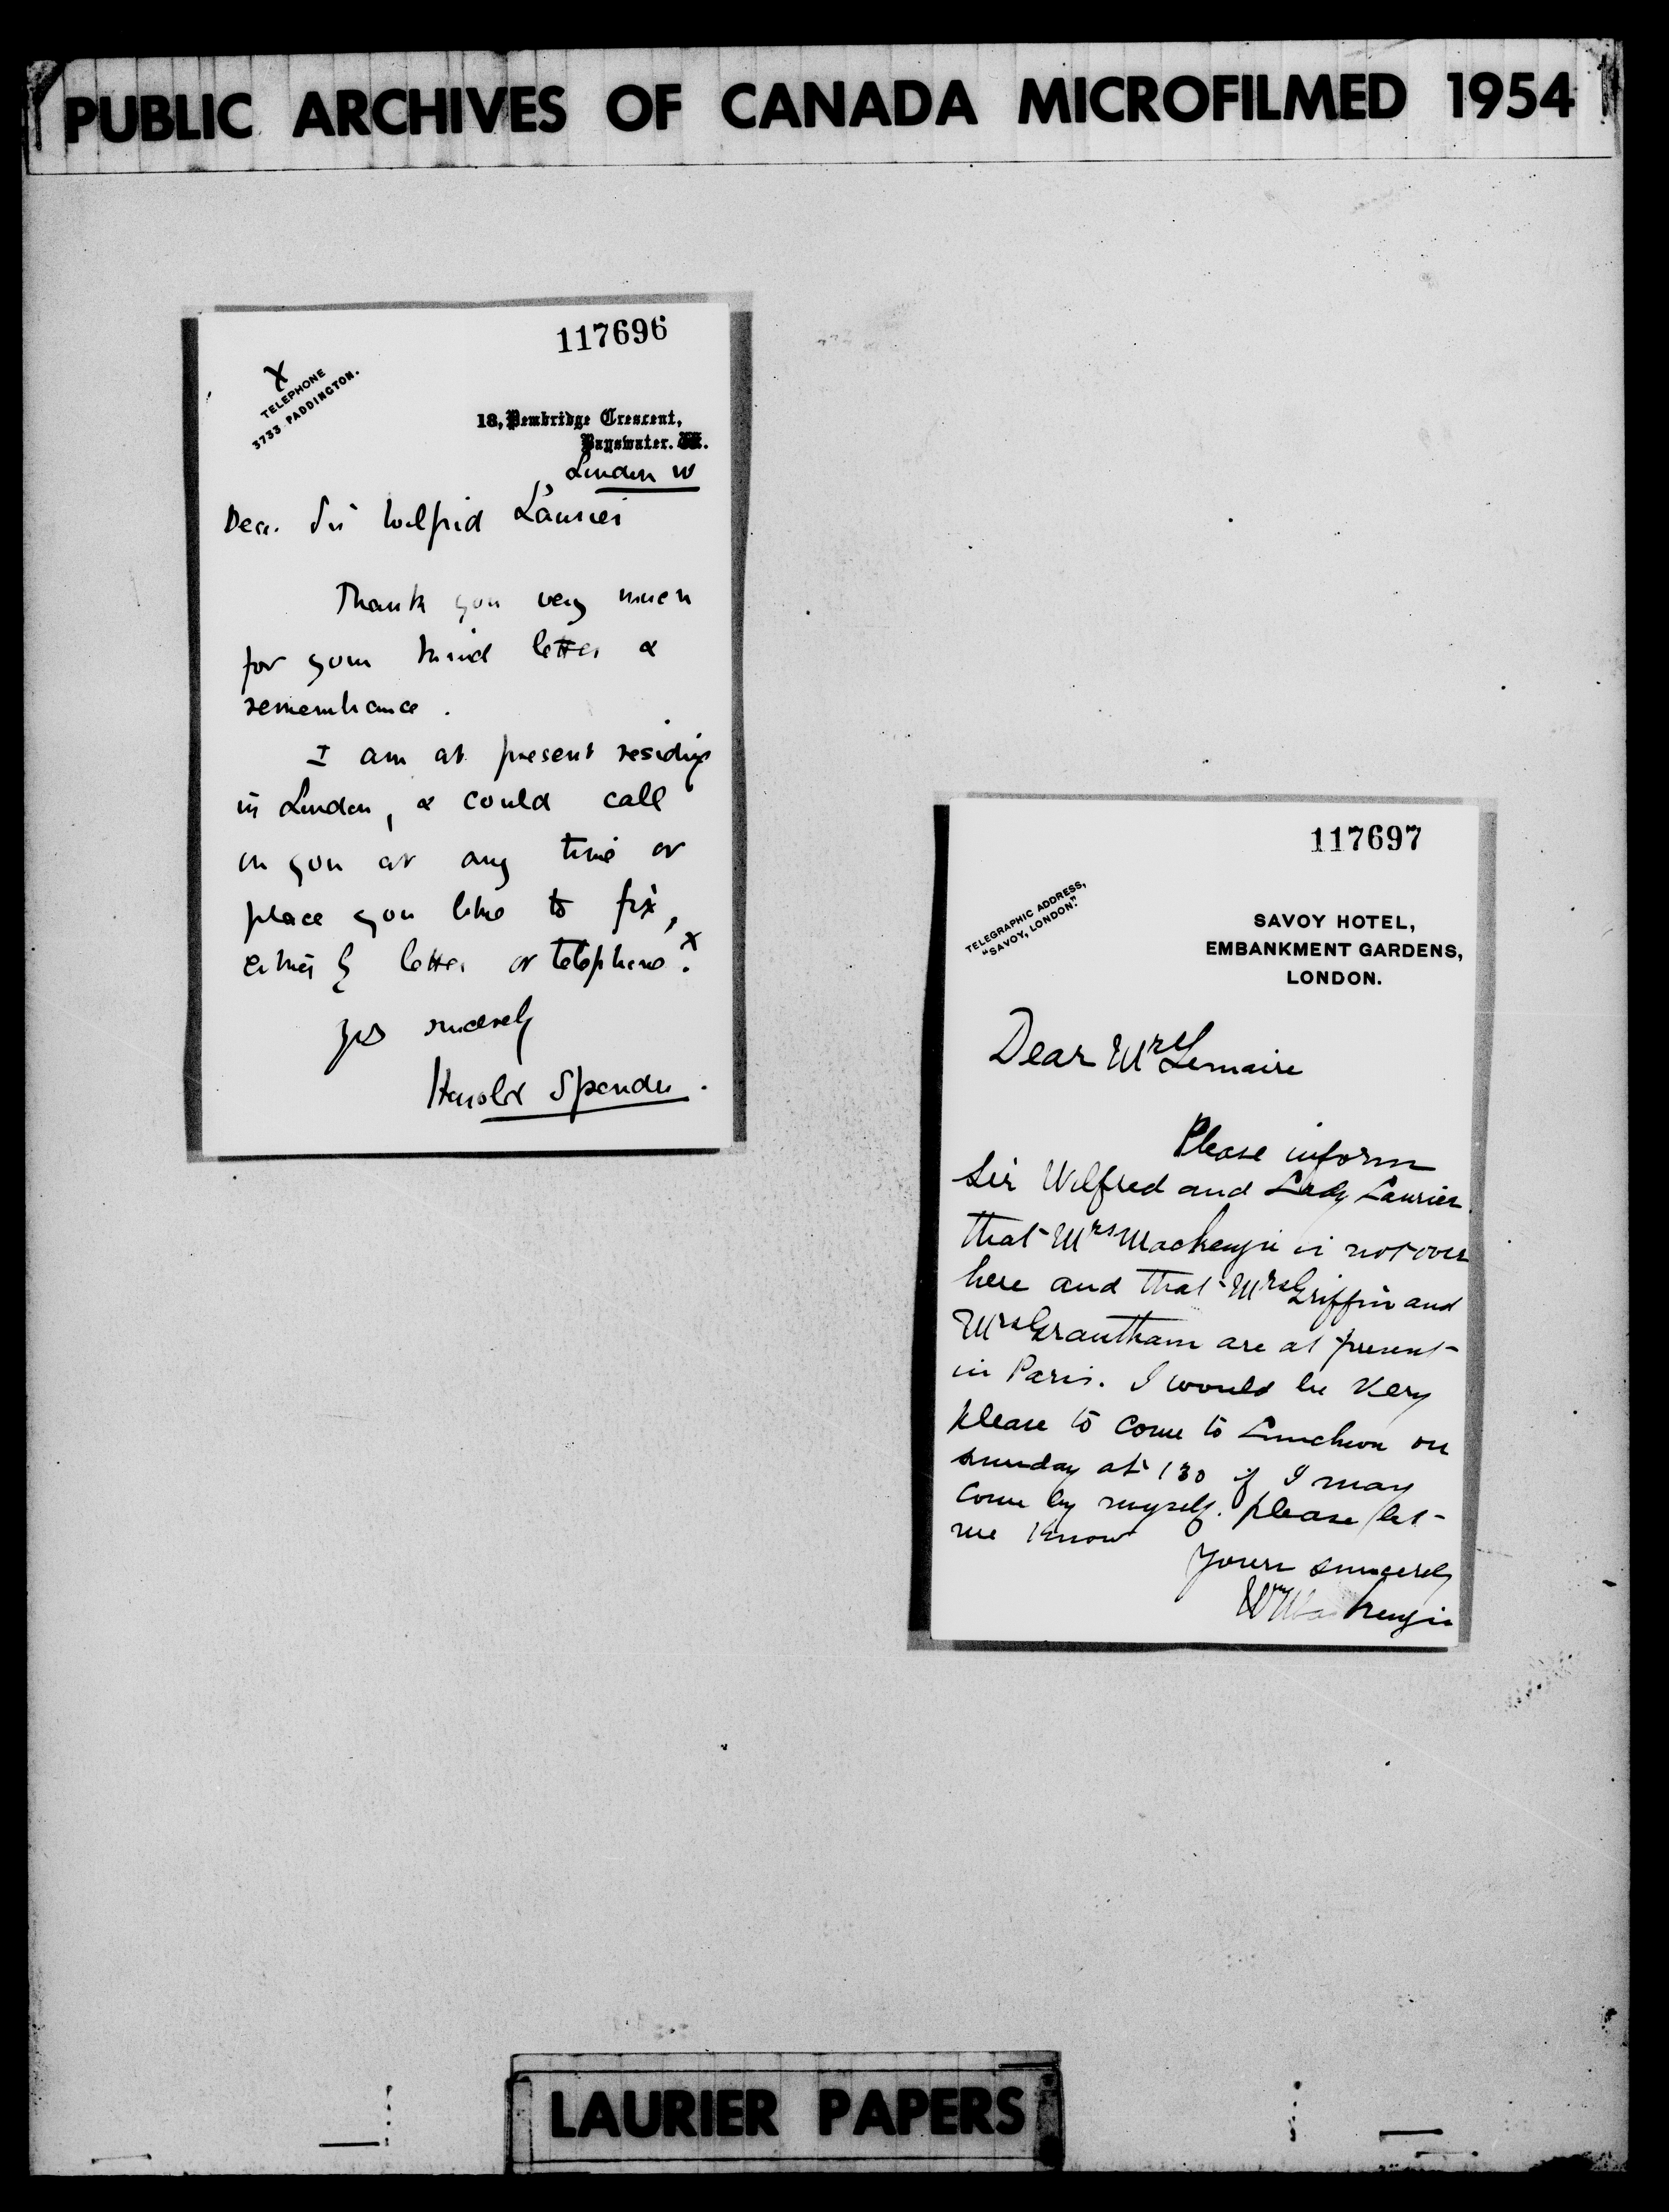 PUBLIC ARCHIVES OF CANADA MICROFILMED 1954
117696
X
TELEPHONE
3733 PADDINGTON.
18, Pembridge Crescent,
Bayswater. W.
London W
Dear Sir Wilfrid Laurier
Thank you very much
for your kind letter &
remembrance.
I am at present residing
in London, & could call
on you at any time or
place you like to fix,
either by letter or telephone. x
Yrs sincerely
Harold Spender.
117697
TELEGRAPHIC ADDRESS,
"SAVOY, LONDON."
SAVOY HOTEL,
EMBANKMENT GARDENS,
LONDON.
Dear Mrs Lemaire
Please inform
Sir Wilfred and Lady Laurier
that Mrs Mackenzie is not over
here and that Mrs Griffin and
Mrs Grantham are at present
in Paris. I would be very
please to come to Luncheon on
sunday at 130 if I may
come by myself. please let
me know
Yours sincerely
Wm Mackenzie
LAURIER PAPERS